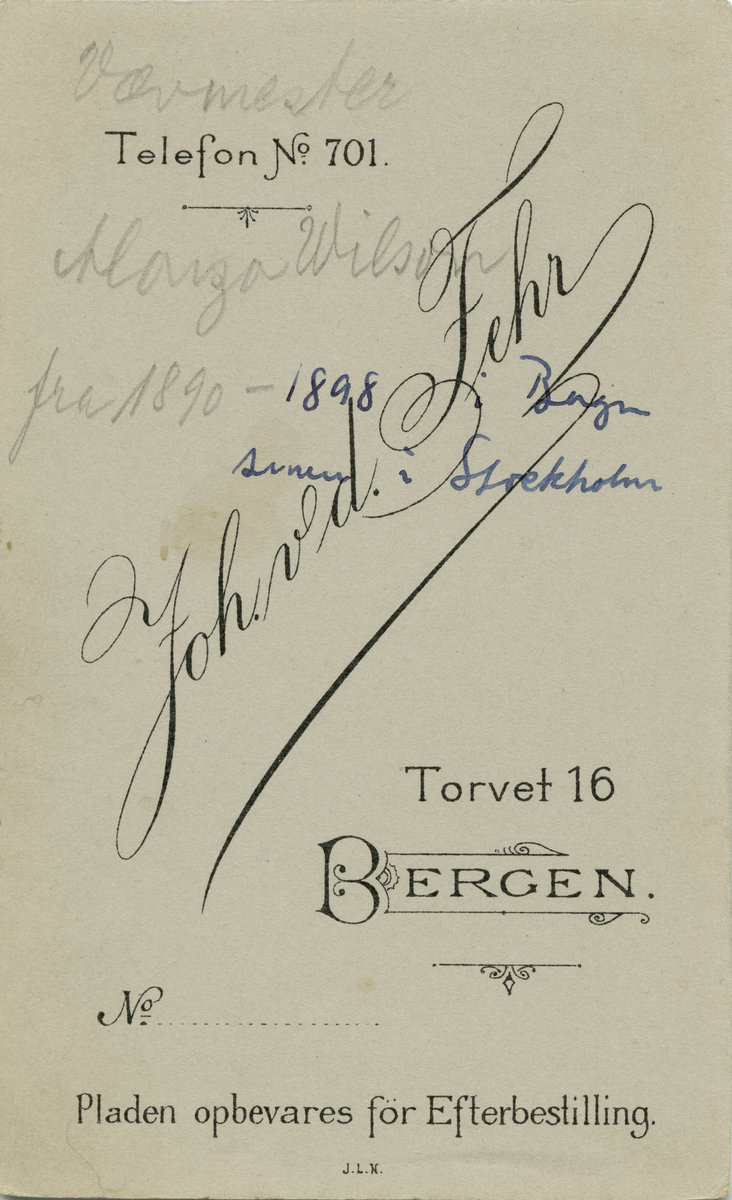 Vævmester
Telefon No. 701.
Alonzo Wilson
fra 1890 - 1898 i Bergen
senere i Stockholm
Joh. v. d. Fehr
Torvet 16
BERGEN.
No.
Pladen opbevares för Efterbestilling.
J.L.N.